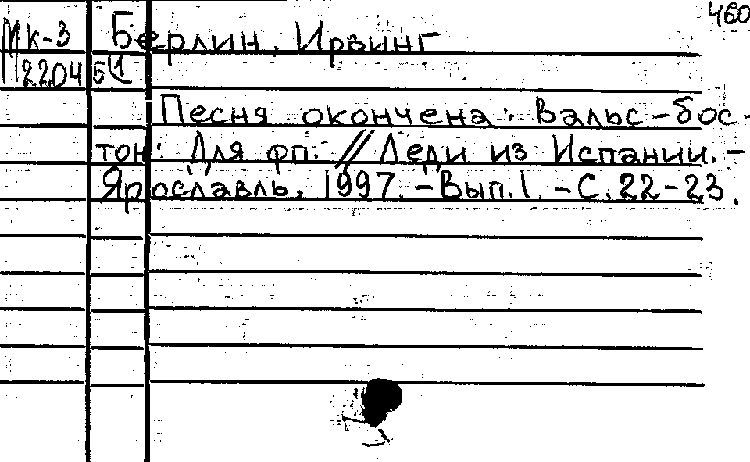 460
Мк-3 Берлин, Ирвинг
П2204 5(1
Песня окончена: Вальс-бос-
тон: Для фп. // Леди из Испании. –
Ярославль, 1997. – Вып. 1. – С. 22-23.